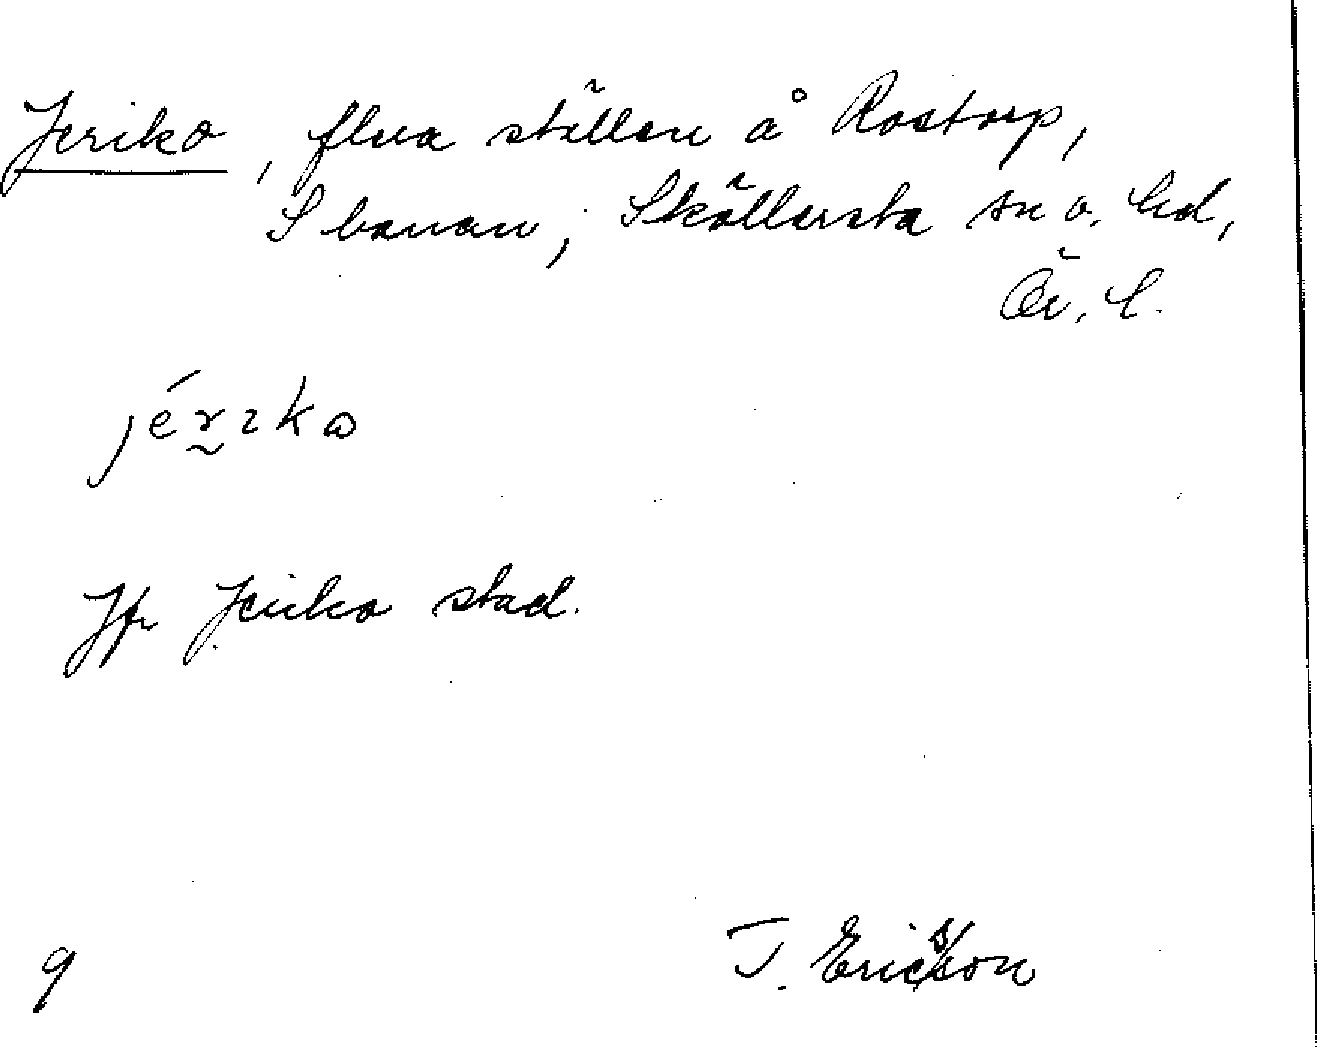 Jeriko, flera ställen å Rostorp,
S banan, Sköllersta sn o. hd,
Ör. l.
jérıkω
Jfr Jeriko stad.
9
T. Ericsson